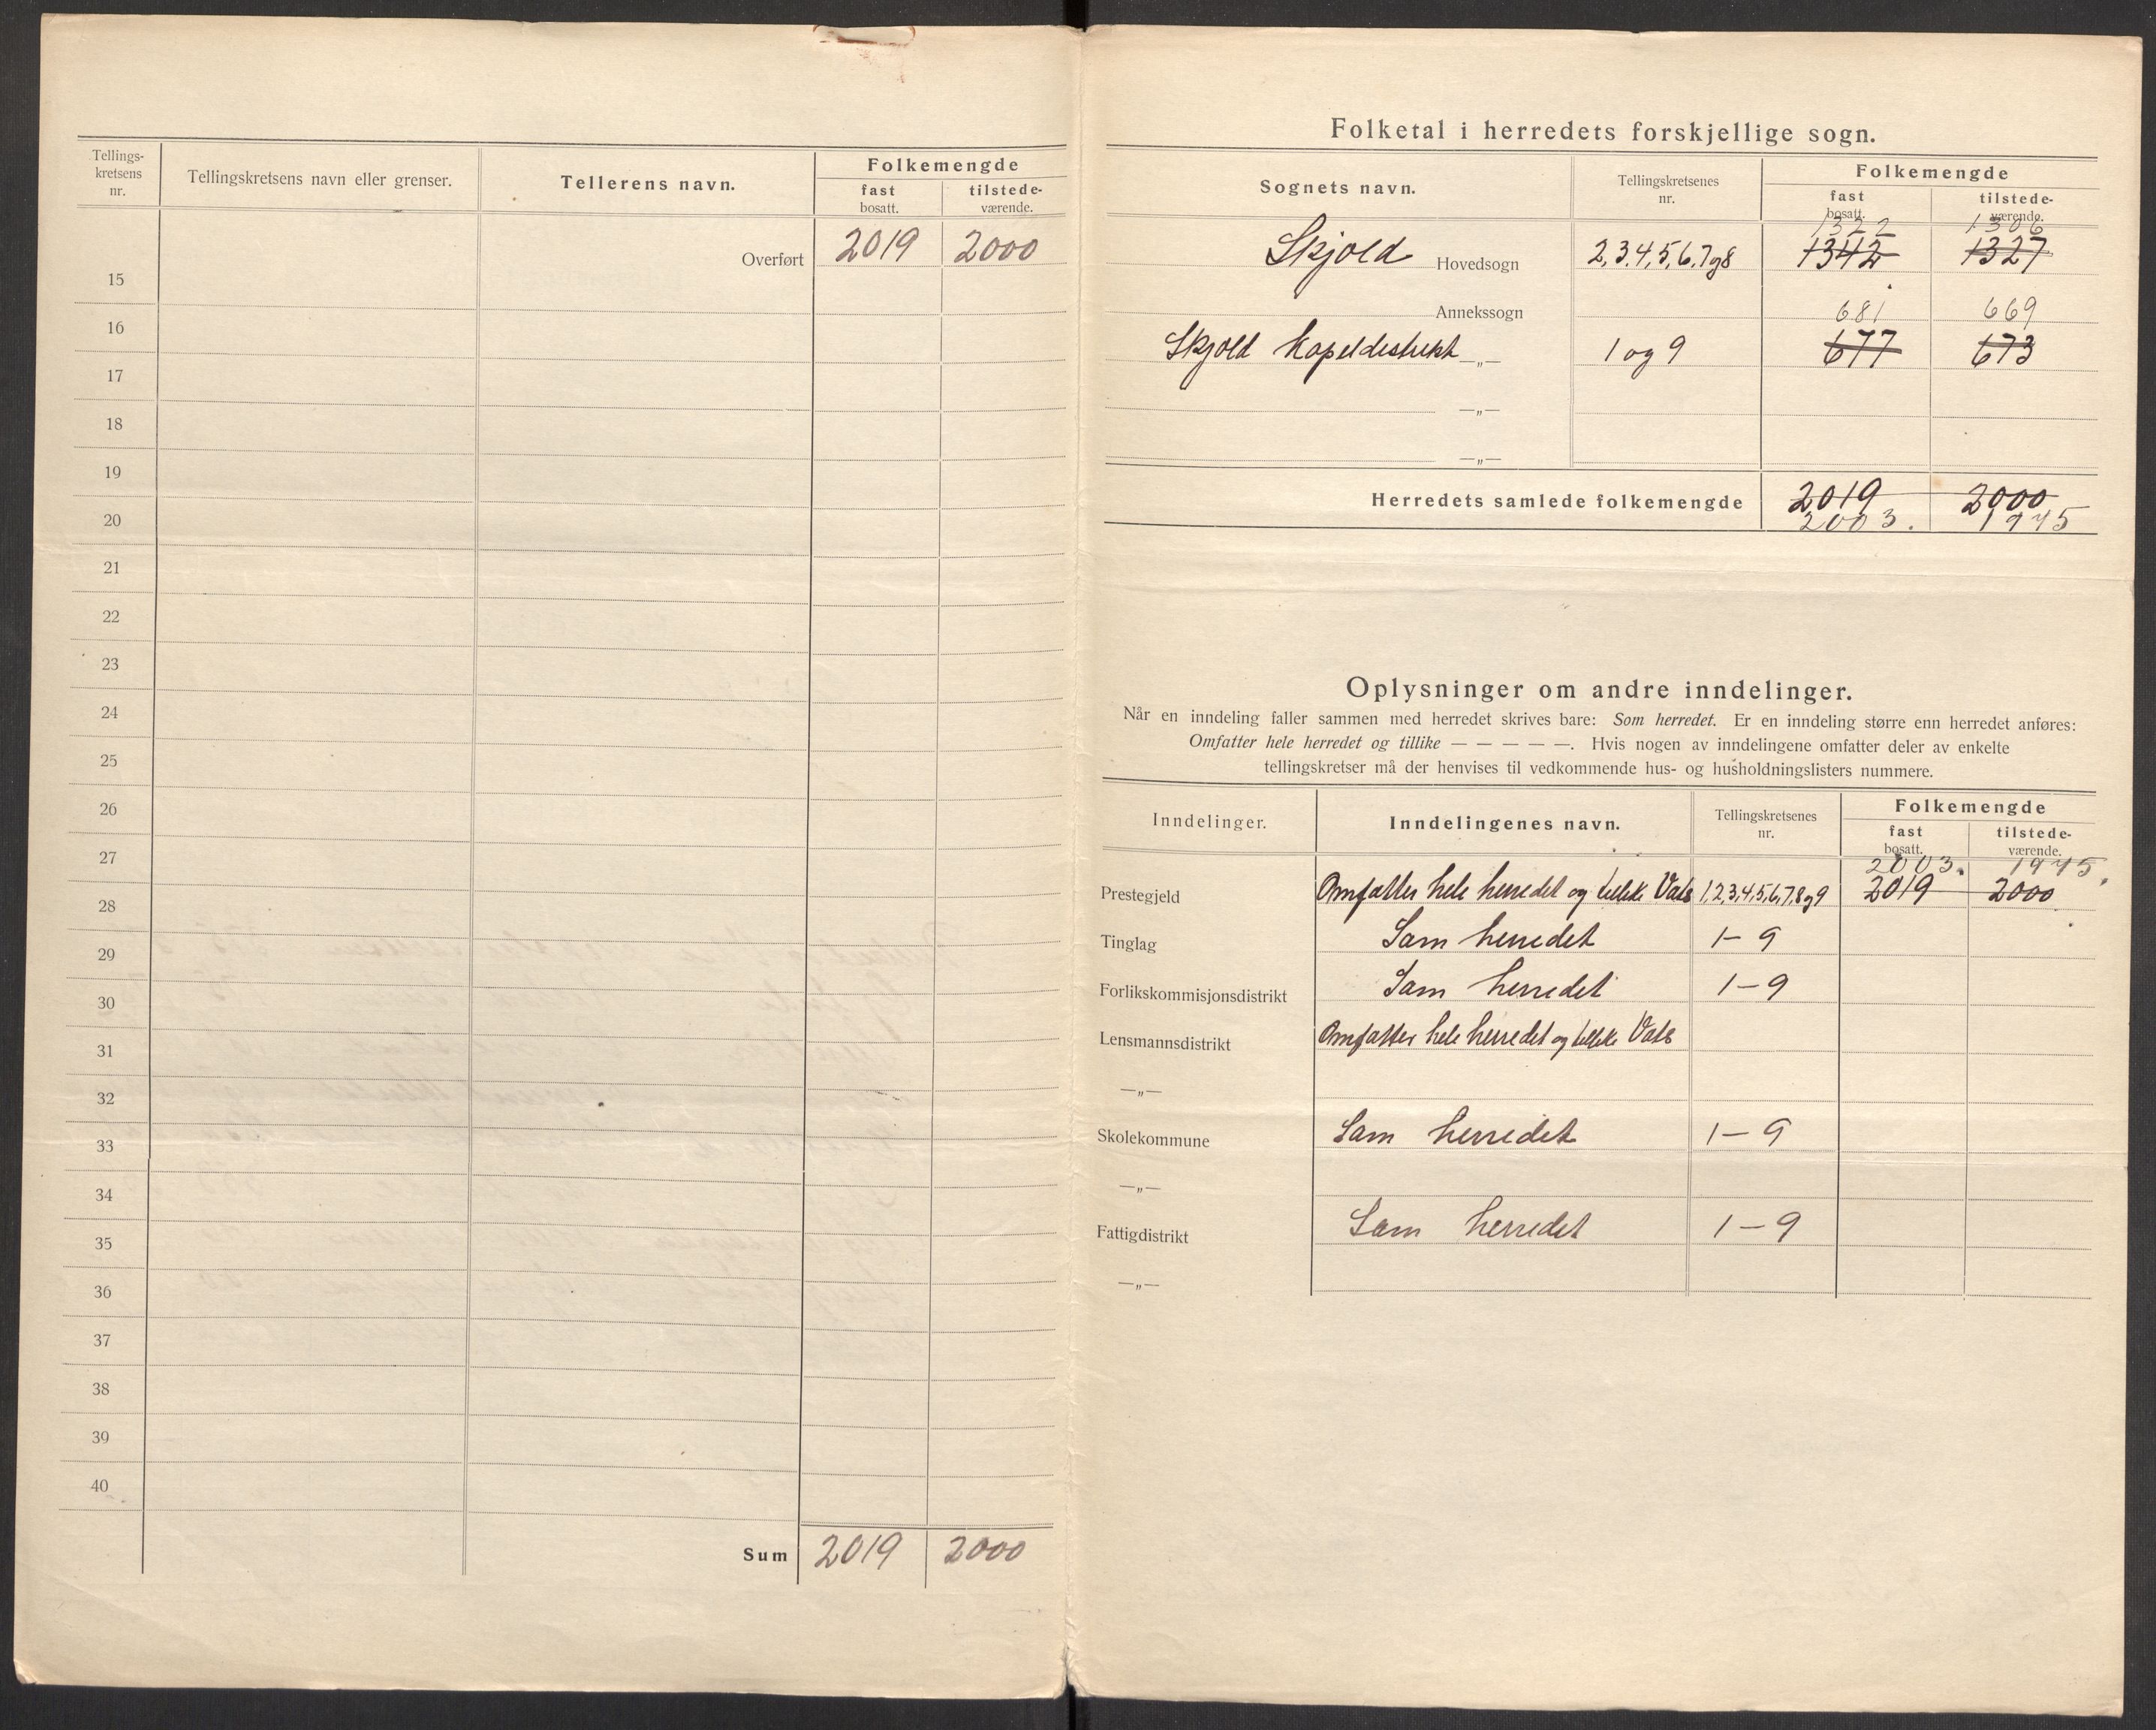 Tellings-
kretsens
nr.
Tellingskretsens navn eller grenser.
Tellerens navn.
Folkemengde
fast
bosatt.
tilstede-
værende.
Overført 2019 2000
15
16
17
18
19
20
21
22
23
24
25
26
27
28
29
30
31
32
33
34
35
36
37
38
39
40
Sum 2019 2000
Folketal i herredets forskjellige sogn.
Sognets navn.
Tellingskretsenes
nr.
Folkemengde
fast
bosatt.
tilstede-
værende.
1322 1306
Skjold Hovedsogn 2,3,4,5,6,7og8 1342 1327
Annekssogn 681 669
Skjold Kapeldistrikt —„— 1 og 9 677 673
—„—
—„—
Herredets samlede folkemengde 2019 2000
2003. 1975
Oplysninger om andre inndelinger.
Når en inndeling faller sammen med herredet skrives bare: Som herredet. Er en inndeling større enn herredet anføres:
Omfatter hele herredet og tillike — — — — —. Hvis nogen av inndelingene omfatter deler av enkelte
tellingskretser må der henvises til vedkommende hus- og husholdningslisters nummere.
Inndelinger.
Inndelingenes navn.
Tellingskretsenes
nr.
Folkemengde
fast
bosatt.
tilstede-
værende.
2003. 1975.
Prestegjeld Omfatter hele herredet og tillike Vats 1,2,3,4,5,6,7,8og9 2019 2000
Tinglag Som herredet 1–9
Forlikskommisjonsdistrikt Som herredet 1–9
Lensmannsdistrikt Omfatter hele herredet og tillike Vats
—„—
Skolekommune Som herredet 1–9
—„—
Fattigdistrikt Som herredet 1–9
—„—